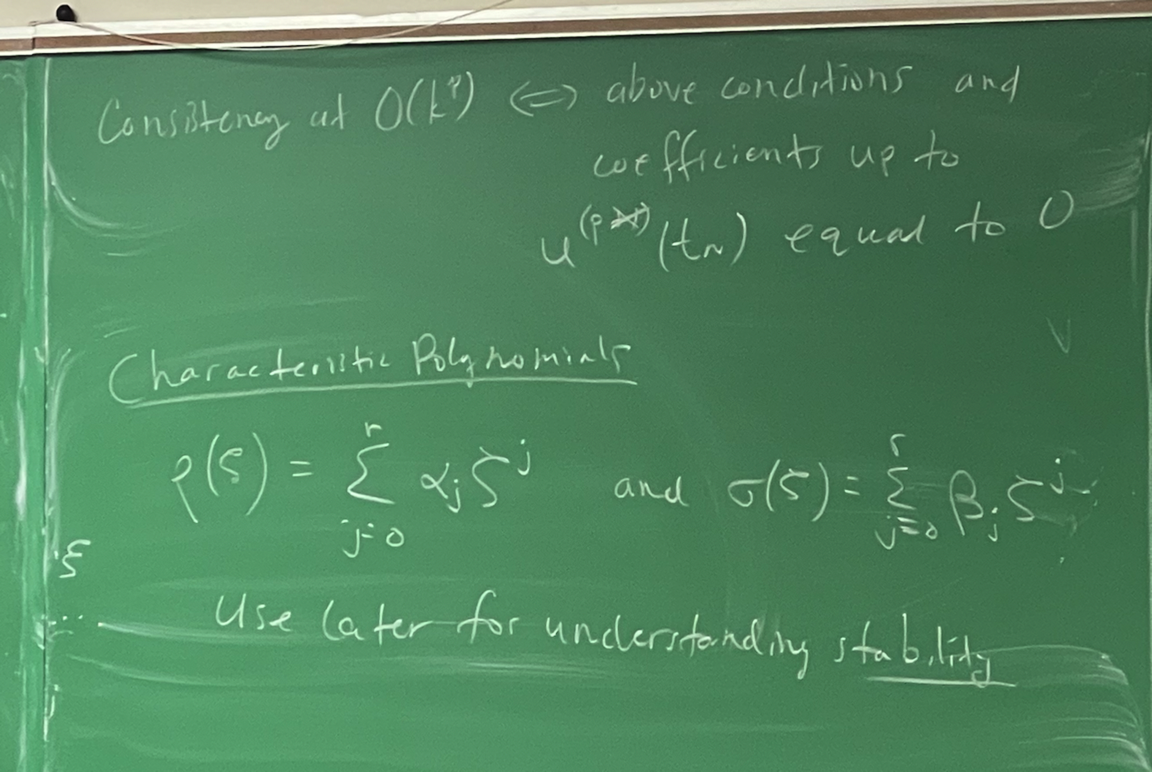 Consistency at O(k^p) ⇔ above conditions and
coefficients up to
u^(p)(t_n) equal to 0
Characteristic Polynomials
ρ(ζ) = Σ_{j=0}^{r} α_j ζ^j and σ(ζ) = Σ_{j=0}^{r} β_j ζ^j
ξ
Use later for understanding stability